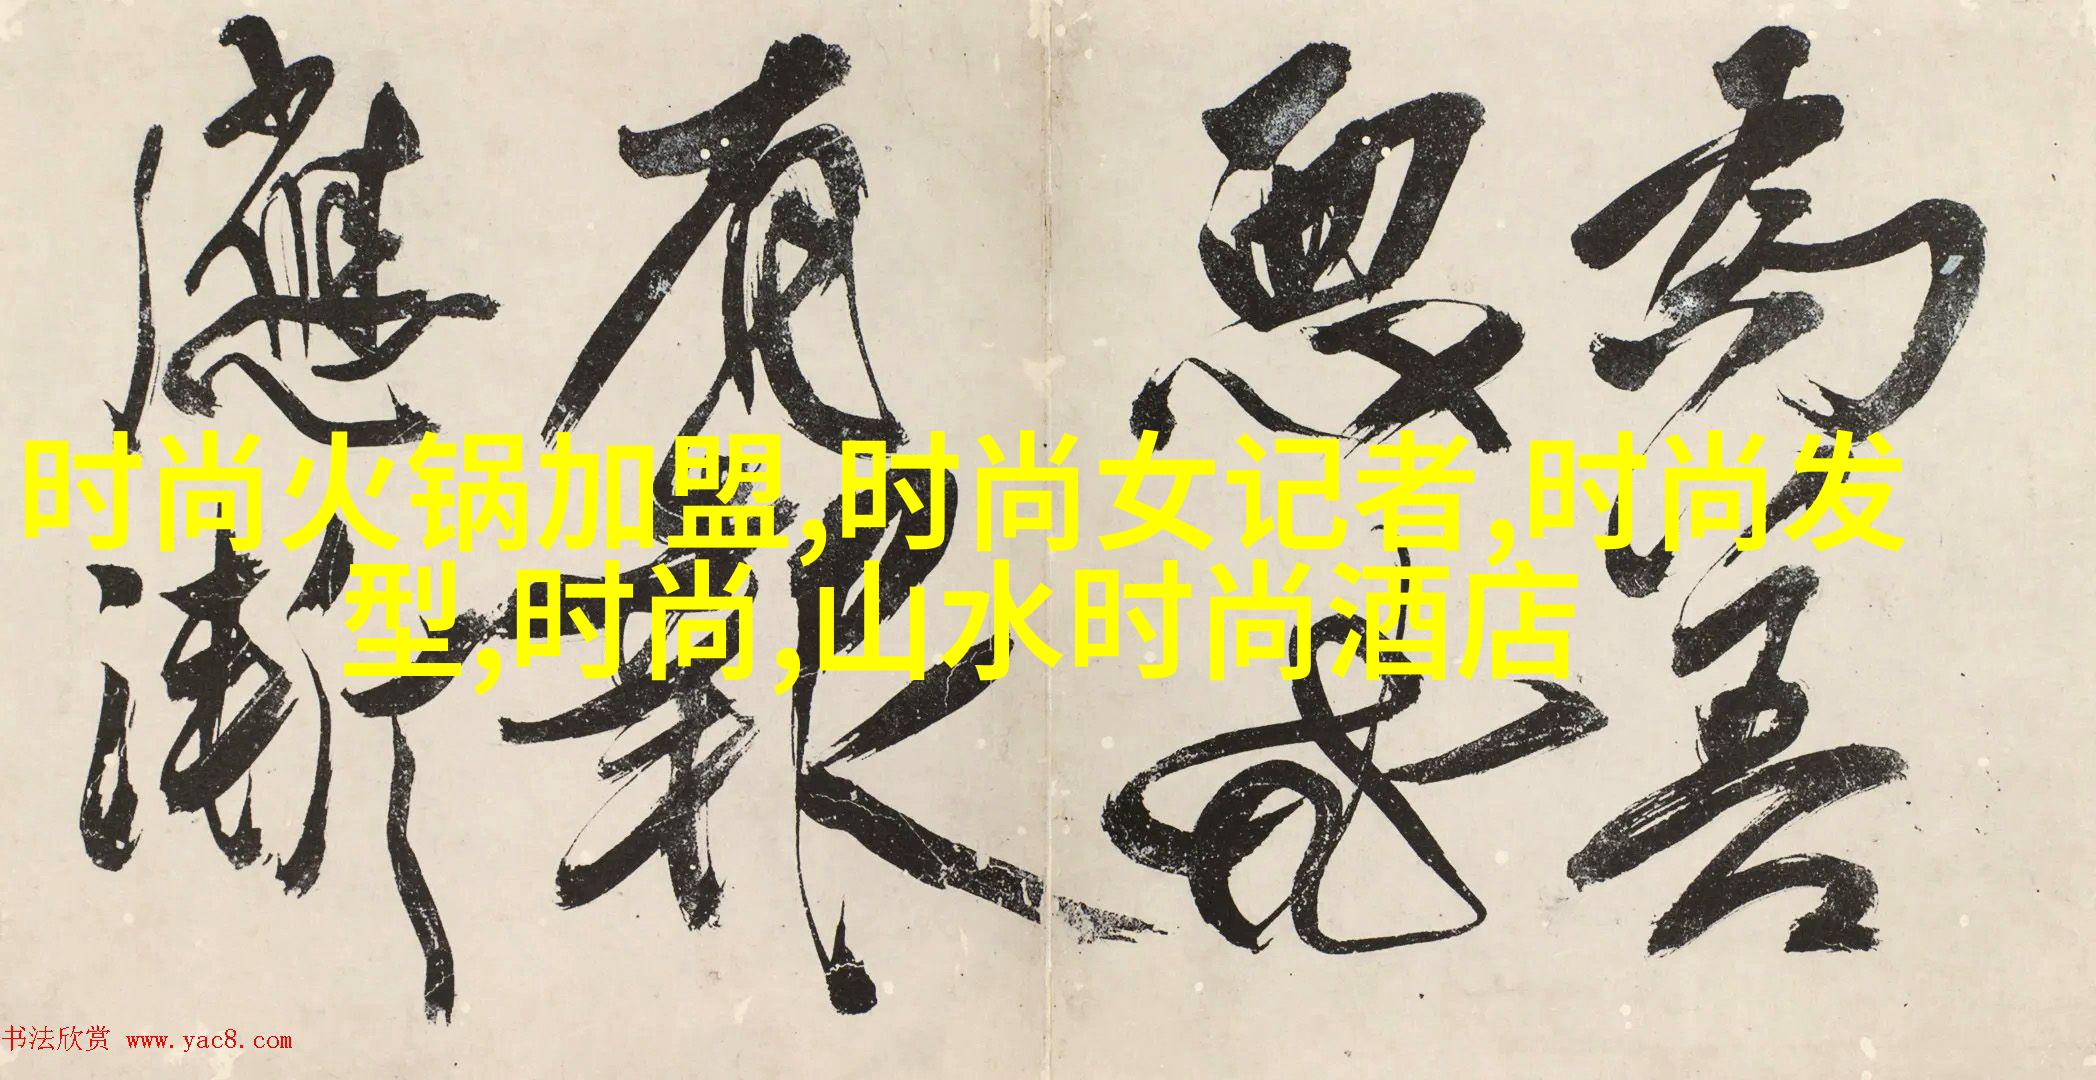 为善
恶或
有报
应渐
时尚火锅加盟,时尚女记者,时尚发
型,时尚,山水时尚酒店
书法欣赏 www.yac8.com